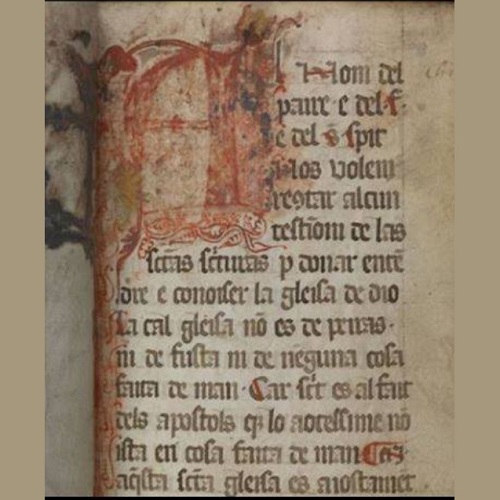 Nom del
paire e del f.
e del s spit
Nos volem
recitar alcun
testimoni de las
sctas scturas p donar ente
dre e conoiser la gleisa de dio
La cal gleisa nō es de peiras.
ni de fusta ni de neguna cosa
faita de man. Car sct es al fait
dels apostols q lo autessime nō
ista en cosa faita de man
aqsta scta gleisa es aiostamēt